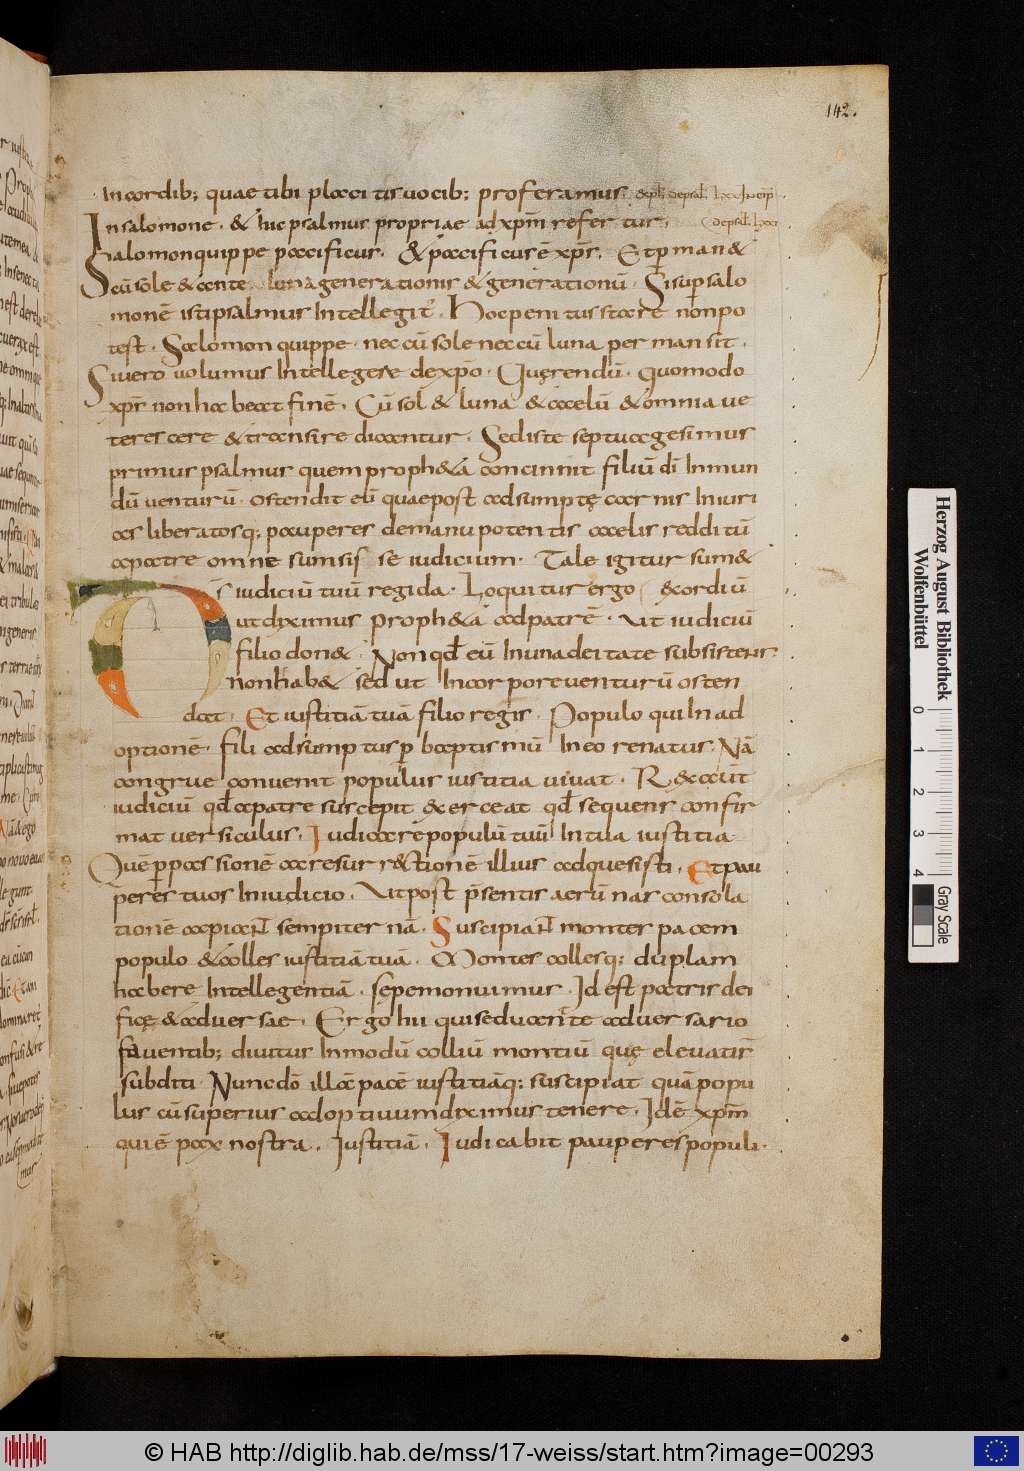 142.
in cordib; quae tibi placci tis vocib; proferamus
In salomone · & hic psalmus propriae ad xpm̄ refer tur ·
Salomon quippe pacificus · & pacificus ē xp̄s · Et p man&
cū sole & ante lunā generationis & generationū · Si sup salo
monē isti psalmus Intellegit̄ · Hoc penitus stare non po
test · Salomon quippe · nec cū sole nec cū luna per mansit ·
Si vero volumus Intellegere de xpo · Quęrendū · quomodo
xp̄s non habeat finē · Cū sol & luna & caelū & omnia ve
terescere & transire dicantur · Sed iste septuagesimus
primus psalmus quem proph&a concinnit filiū dī In mun
dū venturū · ostendit eū quae post adsumptę carnis Iniuri
as liberatosq; pauperes de manu potentis caelis redditū
a patre omne sumsis se iudicium · Tale igitur sum&
Ds iudiciū tuū regi da · Loquitur ergo exordiū
ut diximus proph&a ad patrē · Ut iudiciū
filio don& · Non qđ eū In una deitate subsistens
non hab& sed ut Incorpore venturū osten
dat · Et iustitiā tuā filio regis · Populo qui In ad
optionē · fili adsumptus p baptismū In eo renatus · Nā
congrue convenit populus iustitia vivat · R& ait
iudiciū qđ a patre suscepit exerceat qđ sequens confir
mat versiculus · Iudicare populū tuū In tua iustitia
Quē p passionē ac resurr&tionē illius adquesisti · Et pau
peres tuos In iudicio · Ut post p̄sentis aerūnas consola
tionē accipiant sempiternā · Suscipiant montes pacem
populo & colles iustitiā tuā · Montes collesq; duplam
habere Intellegentiā · sepe monuimus · Id est patris dei
ficę & adversae · Ergo hii qui seducante adversario
faventib; divitus In modū colliū montiū quę elevatis
subditi · Nunc dō illā pacē iustitiāq; suscipiat quā popu
lus cū superius adoptivum diximus tenere · Idē xpm̄
qui ē pax nostra · Iustitiā · Iudicabit pauperes populi ·
Herzog August Bibliothek
Wolfenbüttel
0 1 2 3 4
Gray Scale
© HAB http://diglib.hab.de/mss/17-weiss/start.htm?image=00293